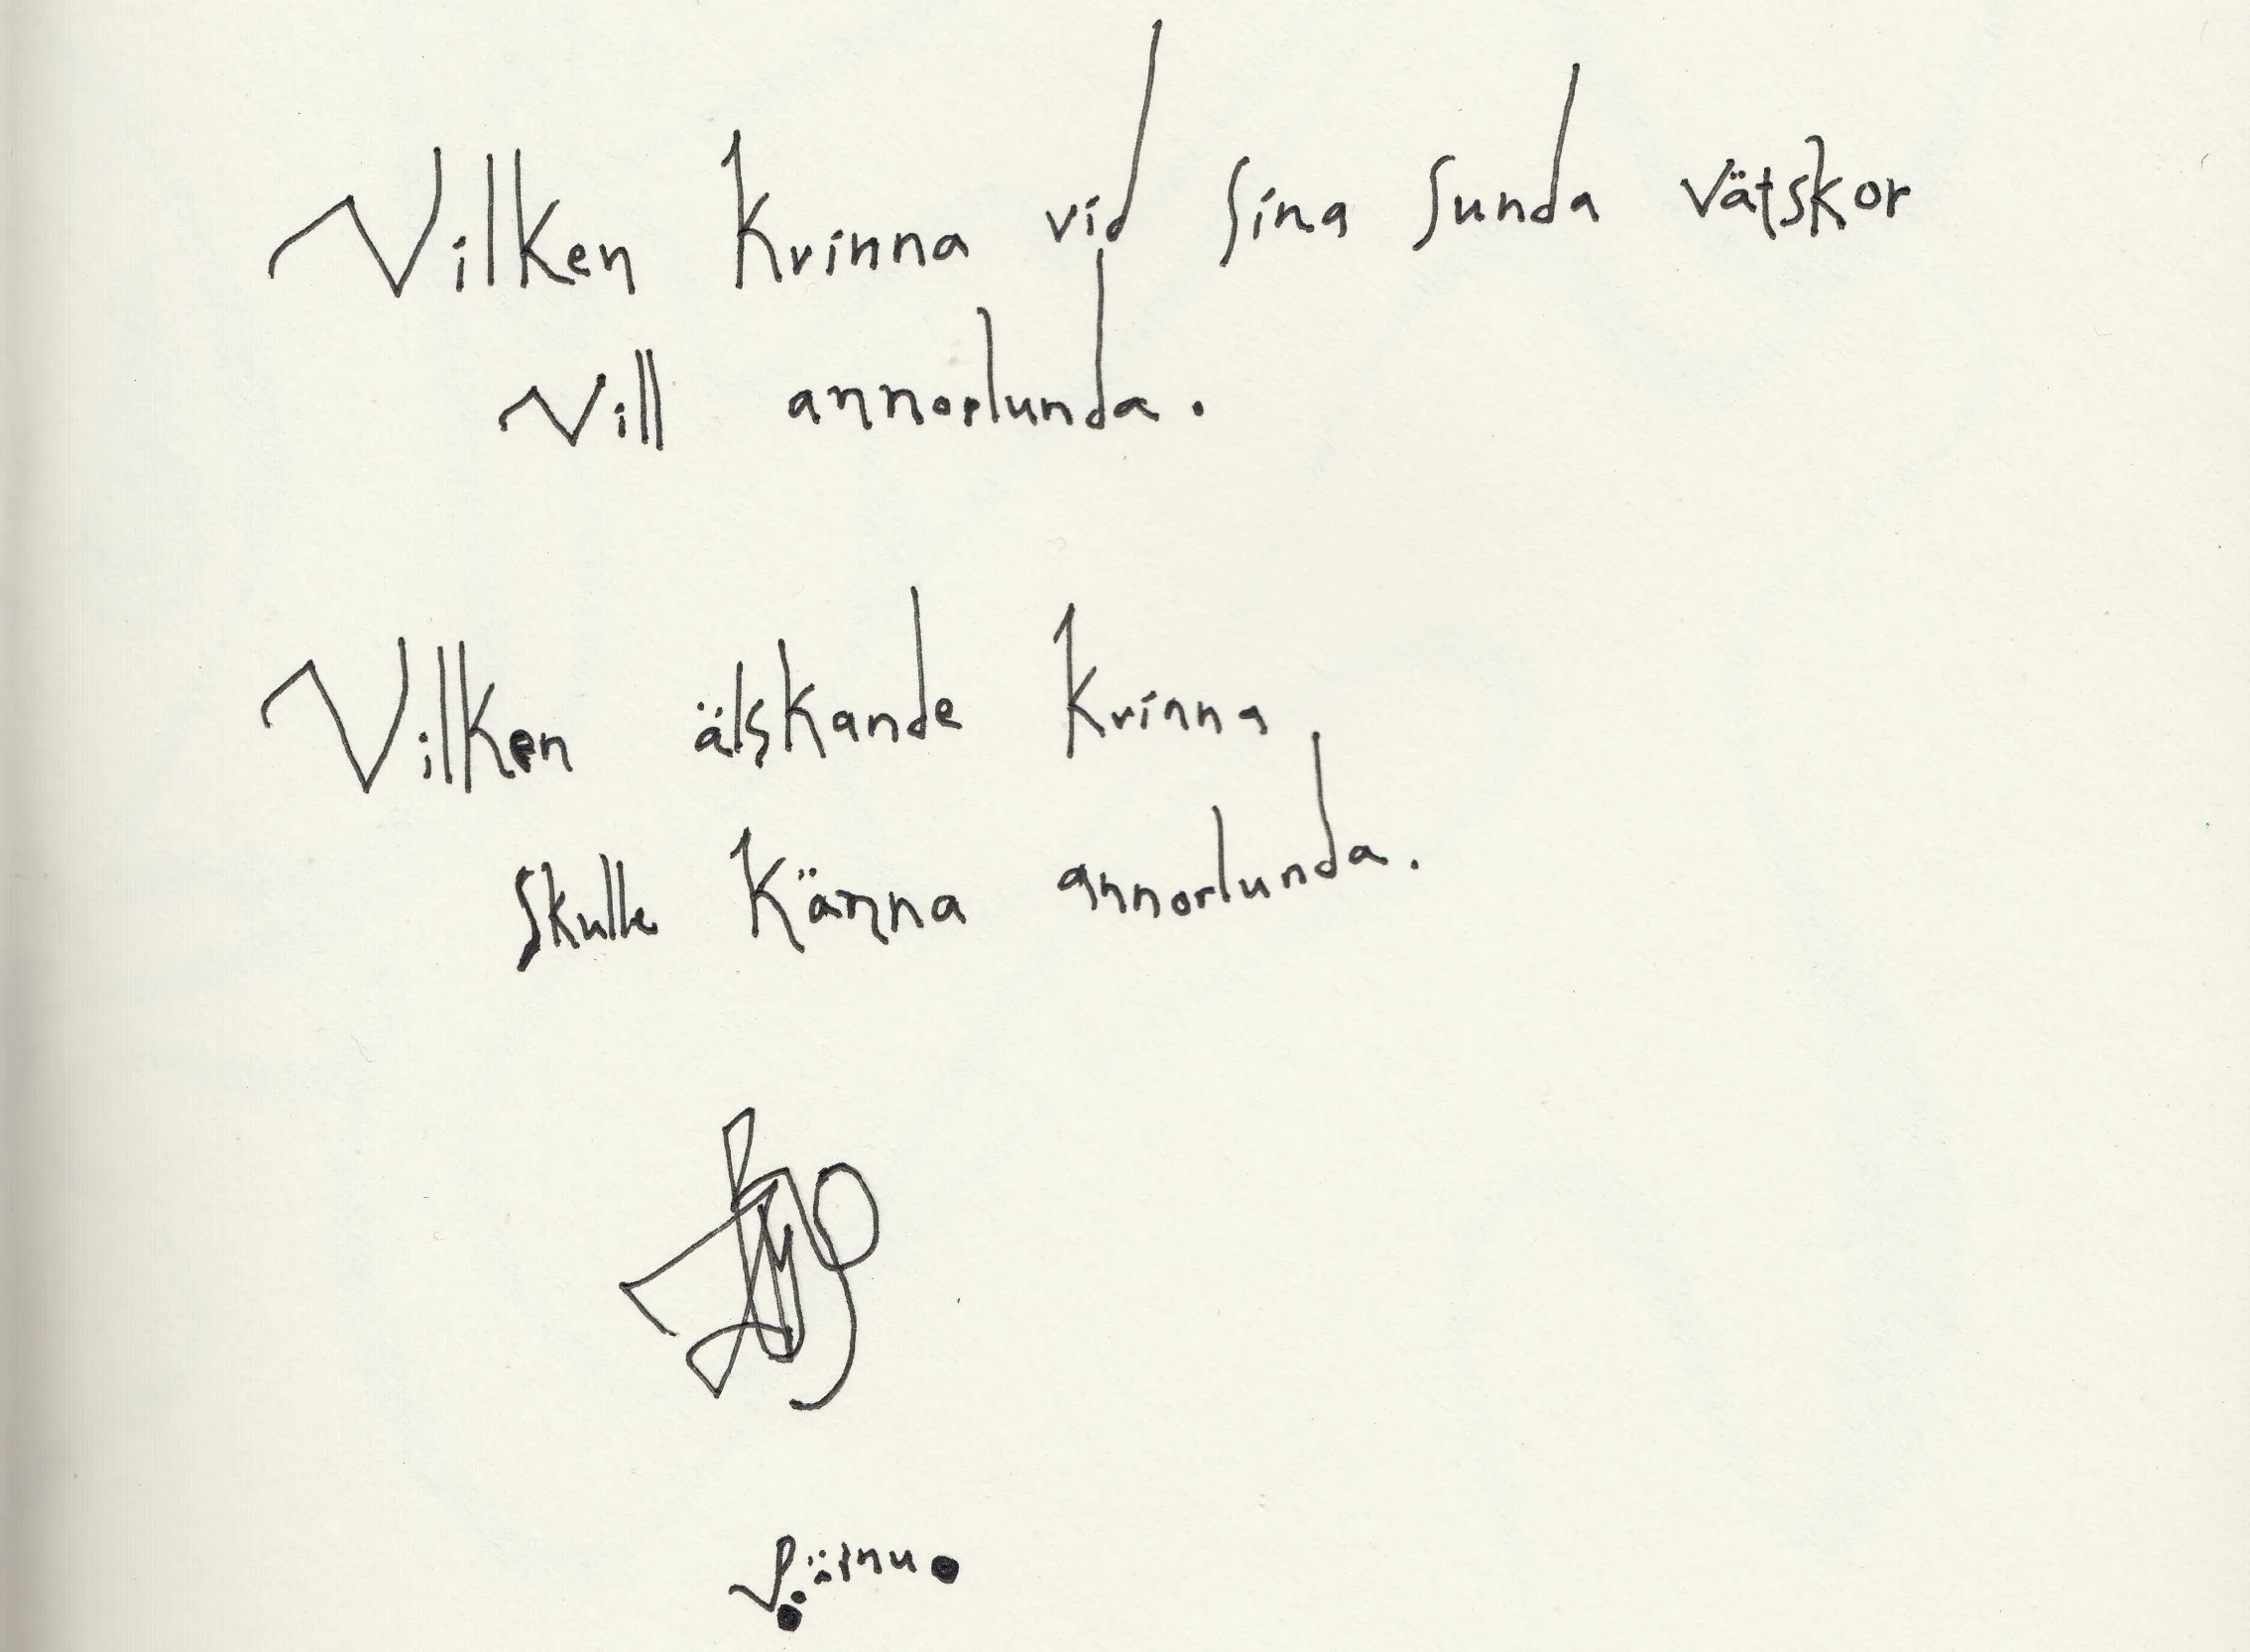 Vilken kvinna vid sina sunda vätskor
vill annorlunda.
Vilken älskande kvinna
skulle känna annorlunda.